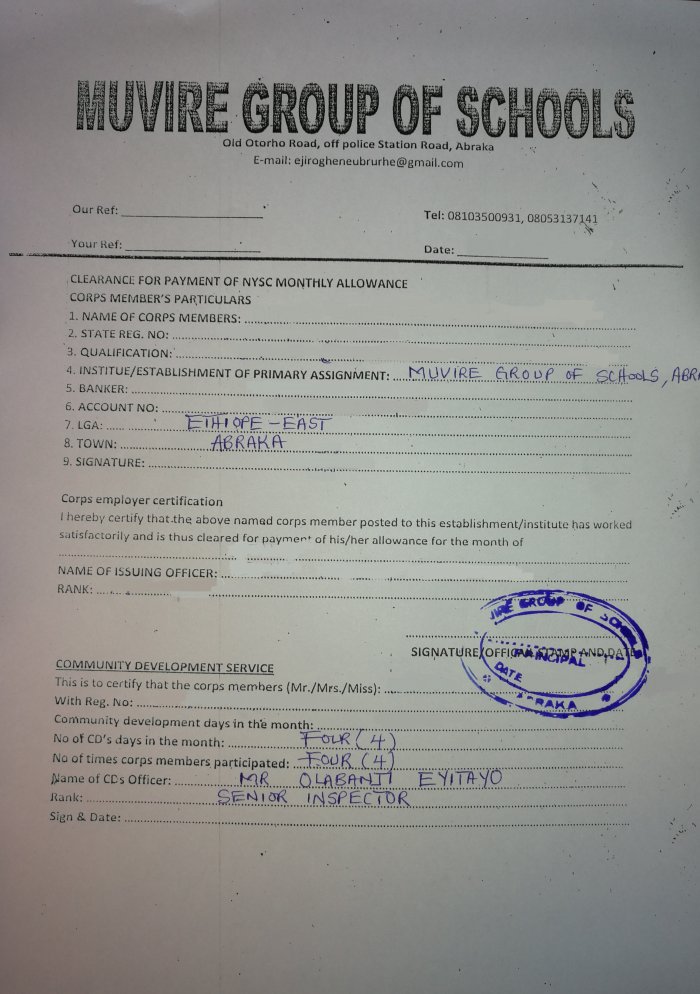 MUVIRE GROUP OF SCHOOLS
Old Otorho Road, off police Station Road, Abraka
E-mail: ejirogheneubrurhe@gmail.com
Our Ref: ____________________ Tel: 08103500931, 08053137141
Your Ref: ____________________ Date: ______________
CLEARANCE FOR PAYMENT OF NYSC MONTHLY ALLOWANCE
CORPS MEMBER'S PARTICULARS
1. NAME OF CORPS MEMBERS: ....................
2. STATE REG. NO: ....................
3. QUALIFICATION: ....................
4. INSTITUE/ESTABLISHMENT OF PRIMARY ASSIGNMENT: ... MUVIRE GROUP OF SCHOOLS, ABRA
5. BANKER: ....................
6. ACCOUNT NO: ....................
7. LGA: ..... ETHIOPE - EAST
8. TOWN: .......... ABRAKA
9. SIGNATURE: ....................
Corps employer certification
I hereby certify that the above named corps member posted to this establishment/institute has worked
satisfactorily and is thus cleared for payment of his/her allowance for the month of
....................
NAME OF ISSUING OFFICER: ....................
RANK: ....................
SIGNATURE/OFFICIAL STAMP AND DATE
VIRE GROUP OF SCHOOLS
PRINCIPAL
DATE
ABRAKA
COMMUNITY DEVELOPMENT SERVICE
This is to certify that the corps members (Mr./Mrs./Miss): ....................
With Reg. No: ....................
Community development days in the month: ....................
No of CD's days in the month: .......... FOUR (4)
No of times corps members participated: FOUR (4)
Name of CDs Officer: .......... MR OLABANJI EYITAYO
Rank: .......... SENIOR INSPECTOR
Sign & Date: ....................